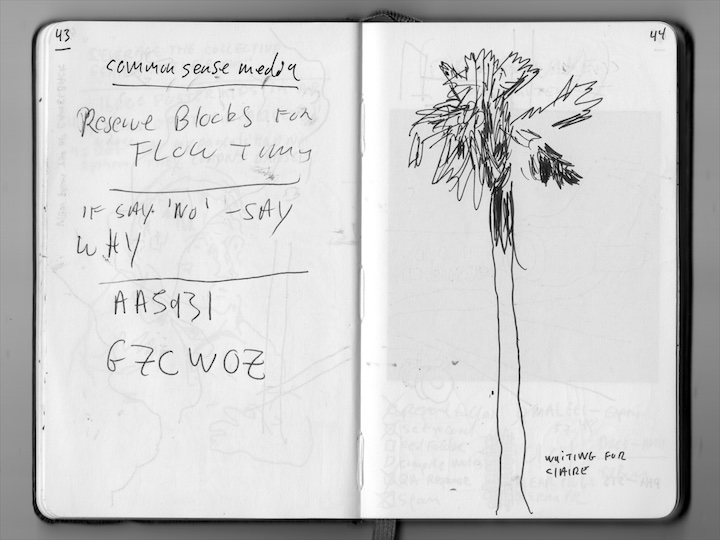 43
common sense media
Reserve Blocks For
FLOW Time
IF SAY 'NO' - SAY
WHY
AA5931
GZCWOZ
44
WAITING FOR
CLAIRE